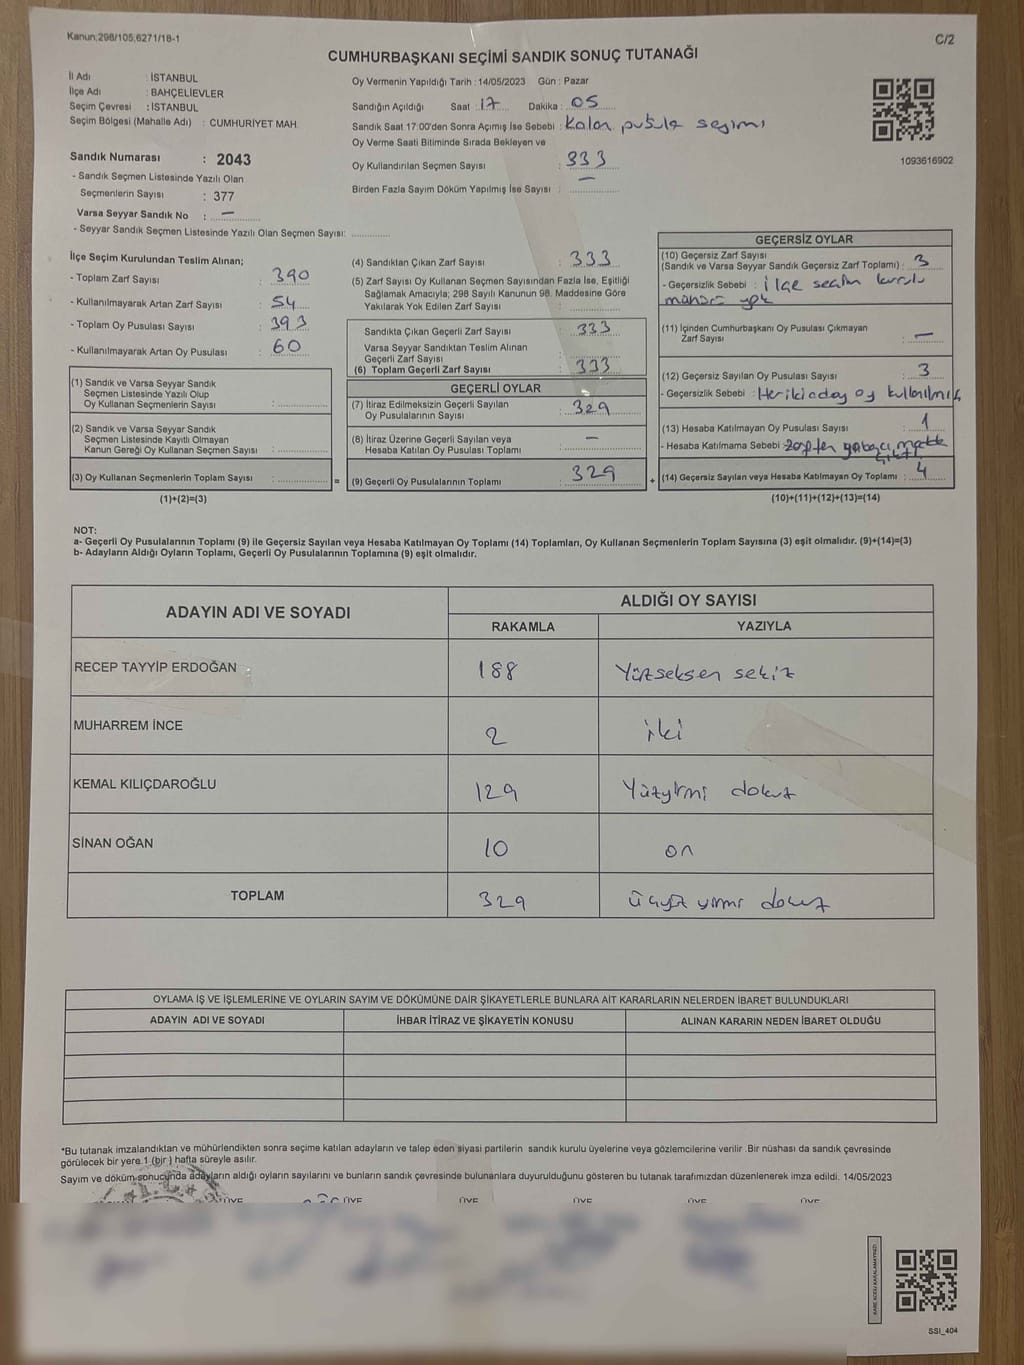 Kanun;298/105,6271/18-1
C/2
CUMHURBAŞKANI SEÇİMİ SANDIK SONUÇ TUTANAĞI
İl Adı : İSTANBUL
İlçe Adı : BAHÇELİEVLER
Seçim Çevresi : İSTANBUL
Seçim Bölgesi (Mahalle Adı) : CUMHURİYET MAH.
Sandık Numarası : 2043
- Sandık Seçmen Listesinde Yazılı Olan
Seçmenlerin Sayısı : 377
Varsa Seyyar Sandık No : —
- Seyyar Sandık Seçmen Listesinde Yazılı Olan Seçmen Sayısı:
Oy Vermenin Yapıldığı Tarih : 14/05/2023 Gün : Pazar
Sandığın Açıldığı Saat : 17 Dakika : 05
Sandık Saat 17:00'den Sonra Açımış İse Sebebi : Kalan pusula seçimi
Oy Verme Saati Bitiminde Sırada Bekleyen ve
Oy Kullandırılan Seçmen Sayısı : 333
Birden Fazla Sayım Döküm Yapılmış İse Sayısı : —
1093616902
İlçe Seçim Kurulundan Teslim Alınan;
- Toplam Zarf Sayısı : 390
- Kullanılmayarak Artan Zarf Sayısı : 54
- Toplam Oy Pusulası Sayısı : 393
- Kullanılmayarak Artan Oy Pusulası : 60
(1) Sandık ve Varsa Seyyar Sandık
Seçmen Listesinde Yazılı Olup
Oy Kullanan Seçmenlerin Sayısı :
(2) Sandık ve Varsa Seyyar Sandık
Seçmen Listesinde Kayıtlı Olmayan
Kanun Gereği Oy Kullanan Seçmen Sayısı :
(3) Oy Kullanan Seçmenlerin Toplam Sayısı : =
(1)+(2)=(3)
(4) Sandıktan Çıkan Zarf Sayısı : 333
(5) Zarf Sayısı Oy Kullanan Seçmen Sayısından Fazla İse, Eşitliği
Sağlamak Amacıyla; 298 Sayılı Kanunun 98. Maddesine Göre
Yakılarak Yok Edilen Zarf Sayısı :
Sandıkta Çıkan Geçerli Zarf Sayısı : 333
Varsa Seyyar Sandıktan Teslim Alınan
Geçerli Zarf Sayısı
(6) Toplam Geçerli Zarf Sayısı : 333
GEÇERLİ OYLAR
(7) İtiraz Edilmeksizin Geçerli Sayılan
Oy Pusulalarının Sayısı : 329
(8) İtiraz Üzerine Geçerli Sayılan veya
Hesaba Katılan Oy Pusulası Toplamı : —
(9) Geçerli Oy Pusulalarının Toplamı : 329 +
GEÇERSİZ OYLAR
(10) Geçersiz Zarf Sayısı;
(Sandık ve Varsa Seyyar Sandık Geçersiz Zarf Toplamı) : 3
- Geçersizlik Sebebi : ilçe seçim kurulu
mührü yok
(11) İçinden Cumhurbaşkanı Oy Pusulası Çıkmayan
Zarf Sayısı : —
(12) Geçersiz Sayılan Oy Pusulası Sayısı : 3
- Geçersizlik Sebebi : Her iki aday oy kullanılmış
(13) Hesaba Katılmayan Oy Pusulası Sayısı : 1
- Hesaba Katılmama Sebebi : zarften yabancı madde
çıktı
(14) Geçersiz Sayılan veya Hesaba Katılmayan Oy Toplamı : 4
(10)+(11)+(12)+(13)=(14)
NOT:
a- Geçerli Oy Pusulalarının Toplamı (9) ile Geçersiz Sayılan veya Hesaba Katılmayan Oy Toplamı (14) Toplamları, Oy Kullanan Seçmenlerin Toplam Sayısına (3) eşit olmalıdır. (9)+(14)=(3)
b- Adayların Aldığı Oyların Toplamı, Geçerli Oy Pusulalarının Toplamına (9) eşit olmalıdır.
ADAYIN ADI VE SOYADI ALDIĞI OY SAYISI
RAKAMLA YAZIYLA
RECEP TAYYİP ERDOĞAN 188 Yüzseksen sekiz
MUHARREM İNCE 2 iki
KEMAL KILIÇDAROĞLU 129 Yüzyirmi dokuz
SİNAN OĞAN 10 on
TOPLAM 329 üçyüz yirmi dokuz
OYLAMA İŞ VE İŞLEMLERİNE VE OYLARIN SAYIM VE DÖKÜMÜNE DAİR ŞİKAYETLERLE BUNLARA AİT KARARLARIN NELERDEN İBARET BULUNDUKLARI
ADAYIN ADI VE SOYADI İHBAR İTİRAZ VE ŞİKAYETİN KONUSU ALINAN KARARIN NEDEN İBARET OLDUĞU
*Bu tutanak imzalandıktan ve mühürlendikten sonra seçime katılan adayların ve talep eden siyasi partilerin sandık kurulu üyelerine veya gözlemcilerine verilir .Bir nüshası da sandık çevresinde
görülecek bir yere 1 (bir ) hafta süreyle asılır.
Sayım ve döküm sonucunda adayların aldığı oyların sayılarını ve bunların sandık çevresinde bulunanlara duyurulduğunu gösteren bu tutanak tarafımızdan düzenlenerek imza edildi. 14/05/2023
ÜYE ÜYE ÜYE ÜYE ÜYE ÜYE
SSI_404